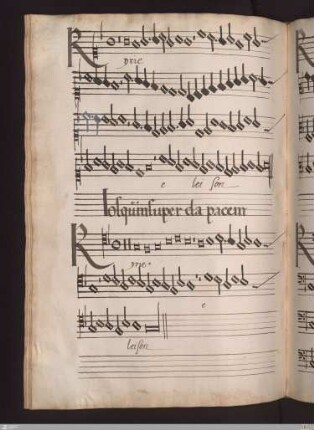 Kyrie
e lei son
Josquin super da pacem
Kyrie
e
leison